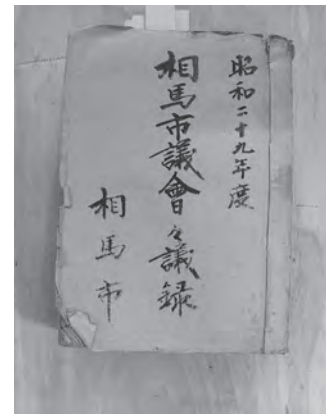 昭和二十九年度
相馬市議會々議録
相馬市